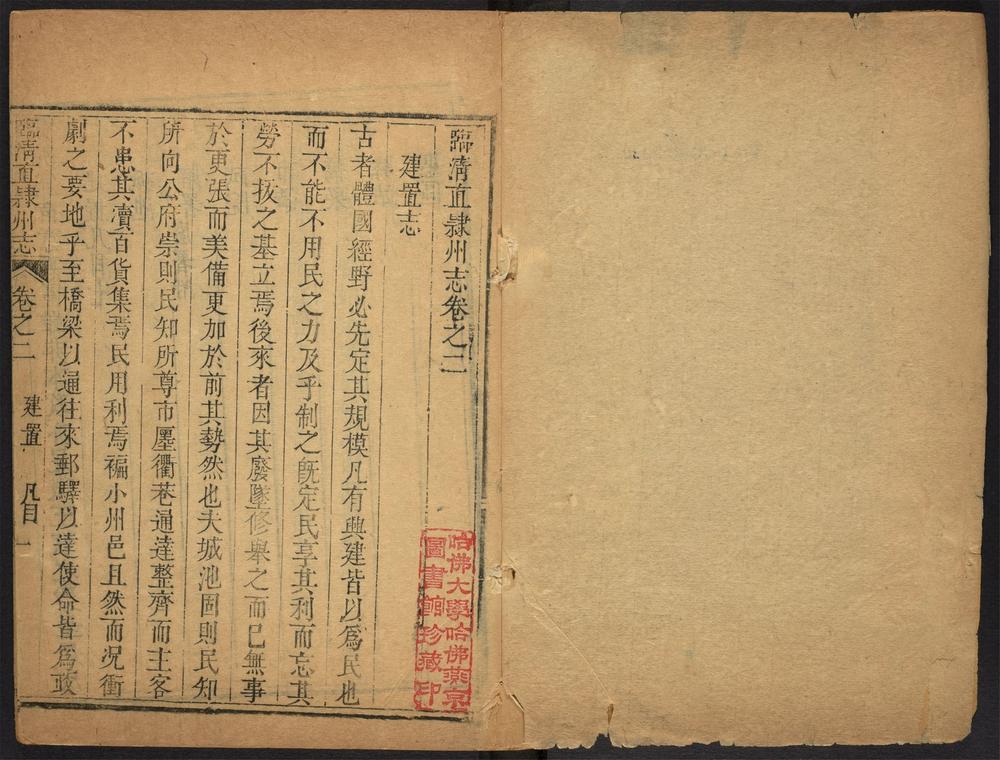 臨清直隷州志卷之二
建置志
古者體國經野必先定其規模凡有興建皆以爲民也
而不能不用民之力及乎制之旣定民享其利而忘其
勞不拔之基立焉後來者因其廢墜修舉之而已無事
於更張而美備更加於前其勢然也夫城池固則民知
所向公府崇則民知所尊市廛衢巷通達整齊而主客
不患其賣百貨集焉民用利焉褊小州邑且然而况衝
劇之要地乎至橋梁以通往來郵驛以達使命皆爲政
臨清直隷州志
卷之二
建置
凡目
一
哈佛大學哈佛燕京
圖書館珍藏印